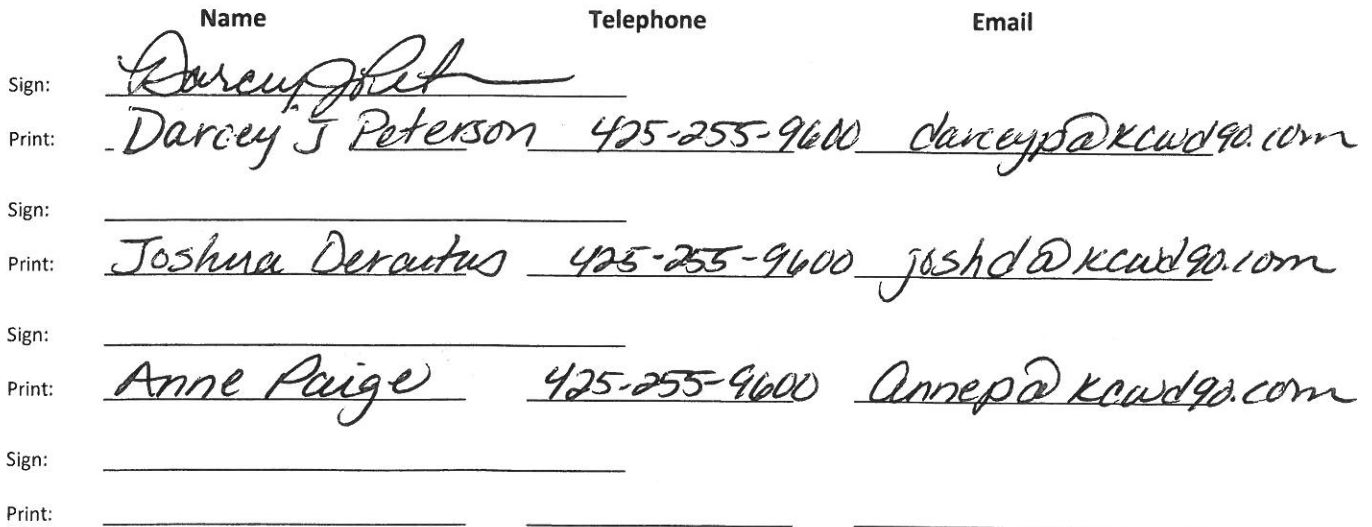 Name Telephone Email
Sign: Darcey J Pet
Print: Darcey J Peterson 425-255-9600 darceyp@kcwd90.com
Sign:
Print: Joshua Deraitus 425-255-9600 joshd@kcwd90.com
Sign:
Print: Anne Paige 425-255-9600 annep@kcwd90.com
Sign:
Print: